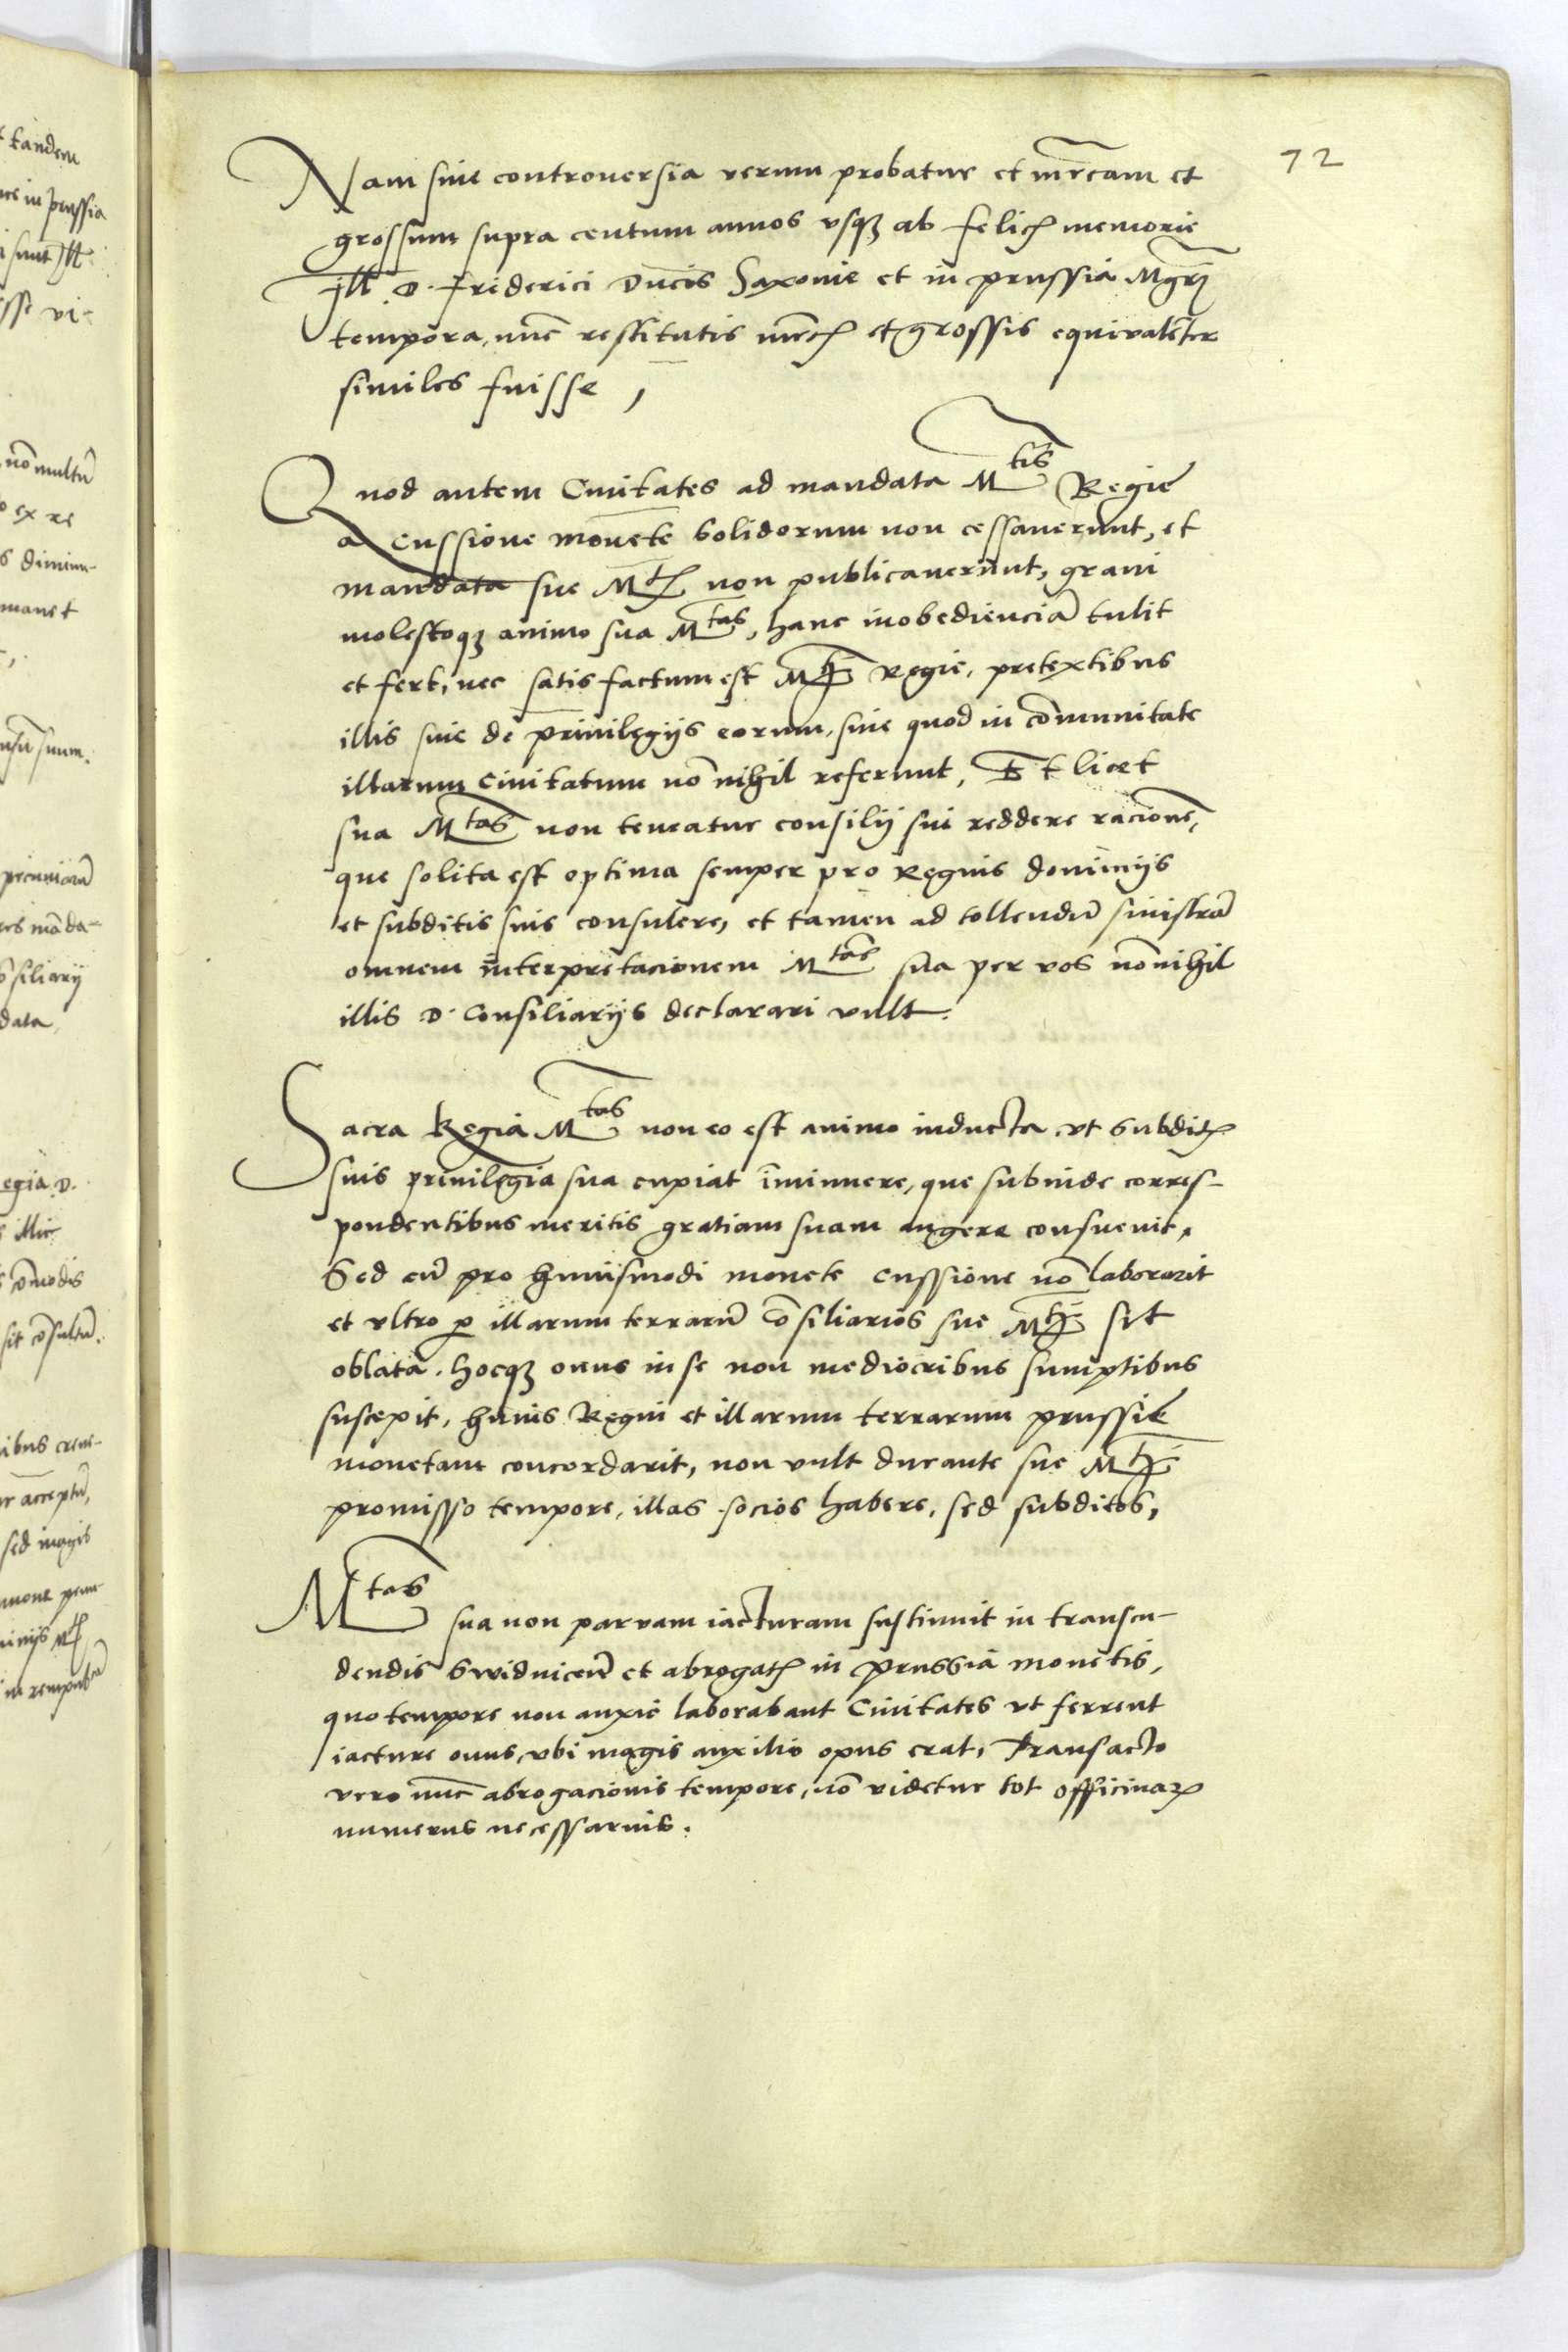 72
Nam sine controuersia verum probatur et mrcam et
grossum supra centum annos vsqꝫ ab felicꝭ memorie
Ill D. Friderici Ducis Saxonie et in prussia Mgrj
tempora, nuc restitutis mrcꝭ et grossis equiualēter
similes fuisse,
Quod autem Ciuitates ad mandata Mtis Regie
a cussione monete solidorum non cessauerunt, et
mandata sue Mtꝭ non publicauerunt, graui
molestoqꝫ animo sua Mtas, hanc inobedienciā tulit
et fert, nec satisfactum est Mtj Regie, pretextibus
illis siue de priuilegijs eorum, siue quod in cōmunitate
illarum Ciuitatum nō nihil referunt, Et licet
sua Mtas non teneatur consilij sui reddere racionē,
que solita est optima semper pro Regnis dominijs
et subditis suis consulere, et tamen ad tollendū sinistrā
omnem interpretacionem Mtas sua per vos nōnihil
illis D. Consiliarijs declarari vult.
Sacra Regia Mtas non eo est animo inducta, vt subditꝭ
suis priuilegia sua cupiat īminuere, que subinde corres-
pondentibus meritis gratiam suam augere consueuit,
Sed cū pro huiusmodi monete cussione nō laborarit
et vltro ꝑ illarum terrarū cōsiliarios sue Mtj sit
oblata. hocqꝫ onus in se non mediocribus sumptibus
suscepit, huius Regni et illarum terrarum prussie
monetam concordarit, non vult durante sue Mtj
promisso tempore, illas socios habere, sed subditos,
Mtas sua non paruam iacturam sustinuit in transcu-
dendis Swidniceñ et abrogatꝭ in Prussia monetis,
quo tempore non anxie laborabant Ciuitates vt ferrent
iacture onus, vbi magis auxilio opus erat, Transacto
vero nūc abrogacionis tempore, nō videtur tot officinaꝝ
numerus necessarius.